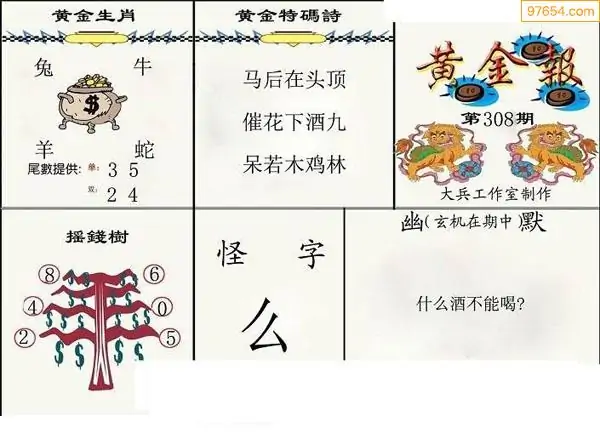 97654.com
黄金生肖
兔 牛
$
羊 蛇
尾數提供：单：3 5
双：2 4
黄金特碼詩
马后在头顶
催花下酒九
呆若木鸡林
黄金報
第308期
大兵工作室制作
摇錢樹
8 6
4 0
2 5
怪 字
么
幽(玄机在期中)默
什么酒不能喝?